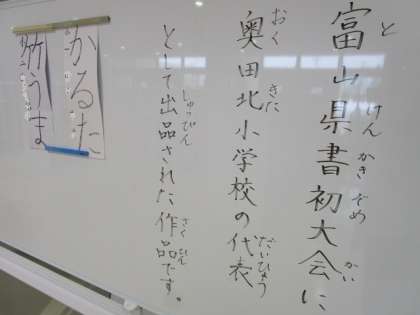 富山県書初大会に
と けん かきぞめ かい
奥田北小学校の代表
おく きた だいひょう
として出品された作品です。
しゅっぴん さくひん
かるた
竹うま